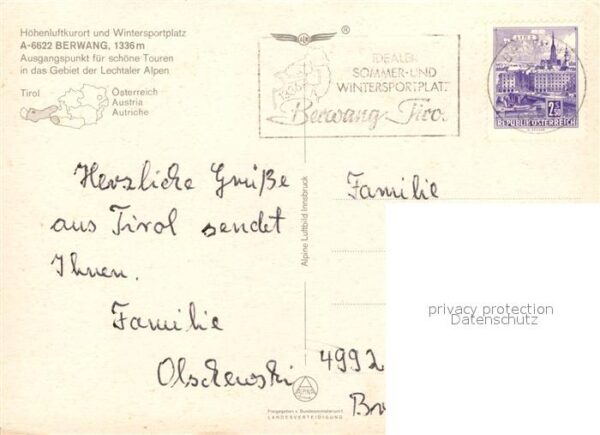 Höhenluftkurort und Wintersportplatz
A-6622 BERWANG, 1336 m
Ausgangspunkt für schöne Touren
in das Gebiet der Lechtaler Alpen
Tirol
Österreich
Austria
Autriche
®
1336m
IDEALER
SOMMER-UND
WINTERSPORTPLATZ
Berwang-Tirol
LINZ
2.50
REPUBLIK ÖSTERREICH
Herzliche Grüße
aus Tirol sendet
Ihnen.
Familie
Olschewski
Alpine Luftbild Innsbruck
ALPINE
Freigegeben v. Bundesministerium f.
LANDESVERTEIDIGUNG
Familie
4992
privacy protection
Datenschutz